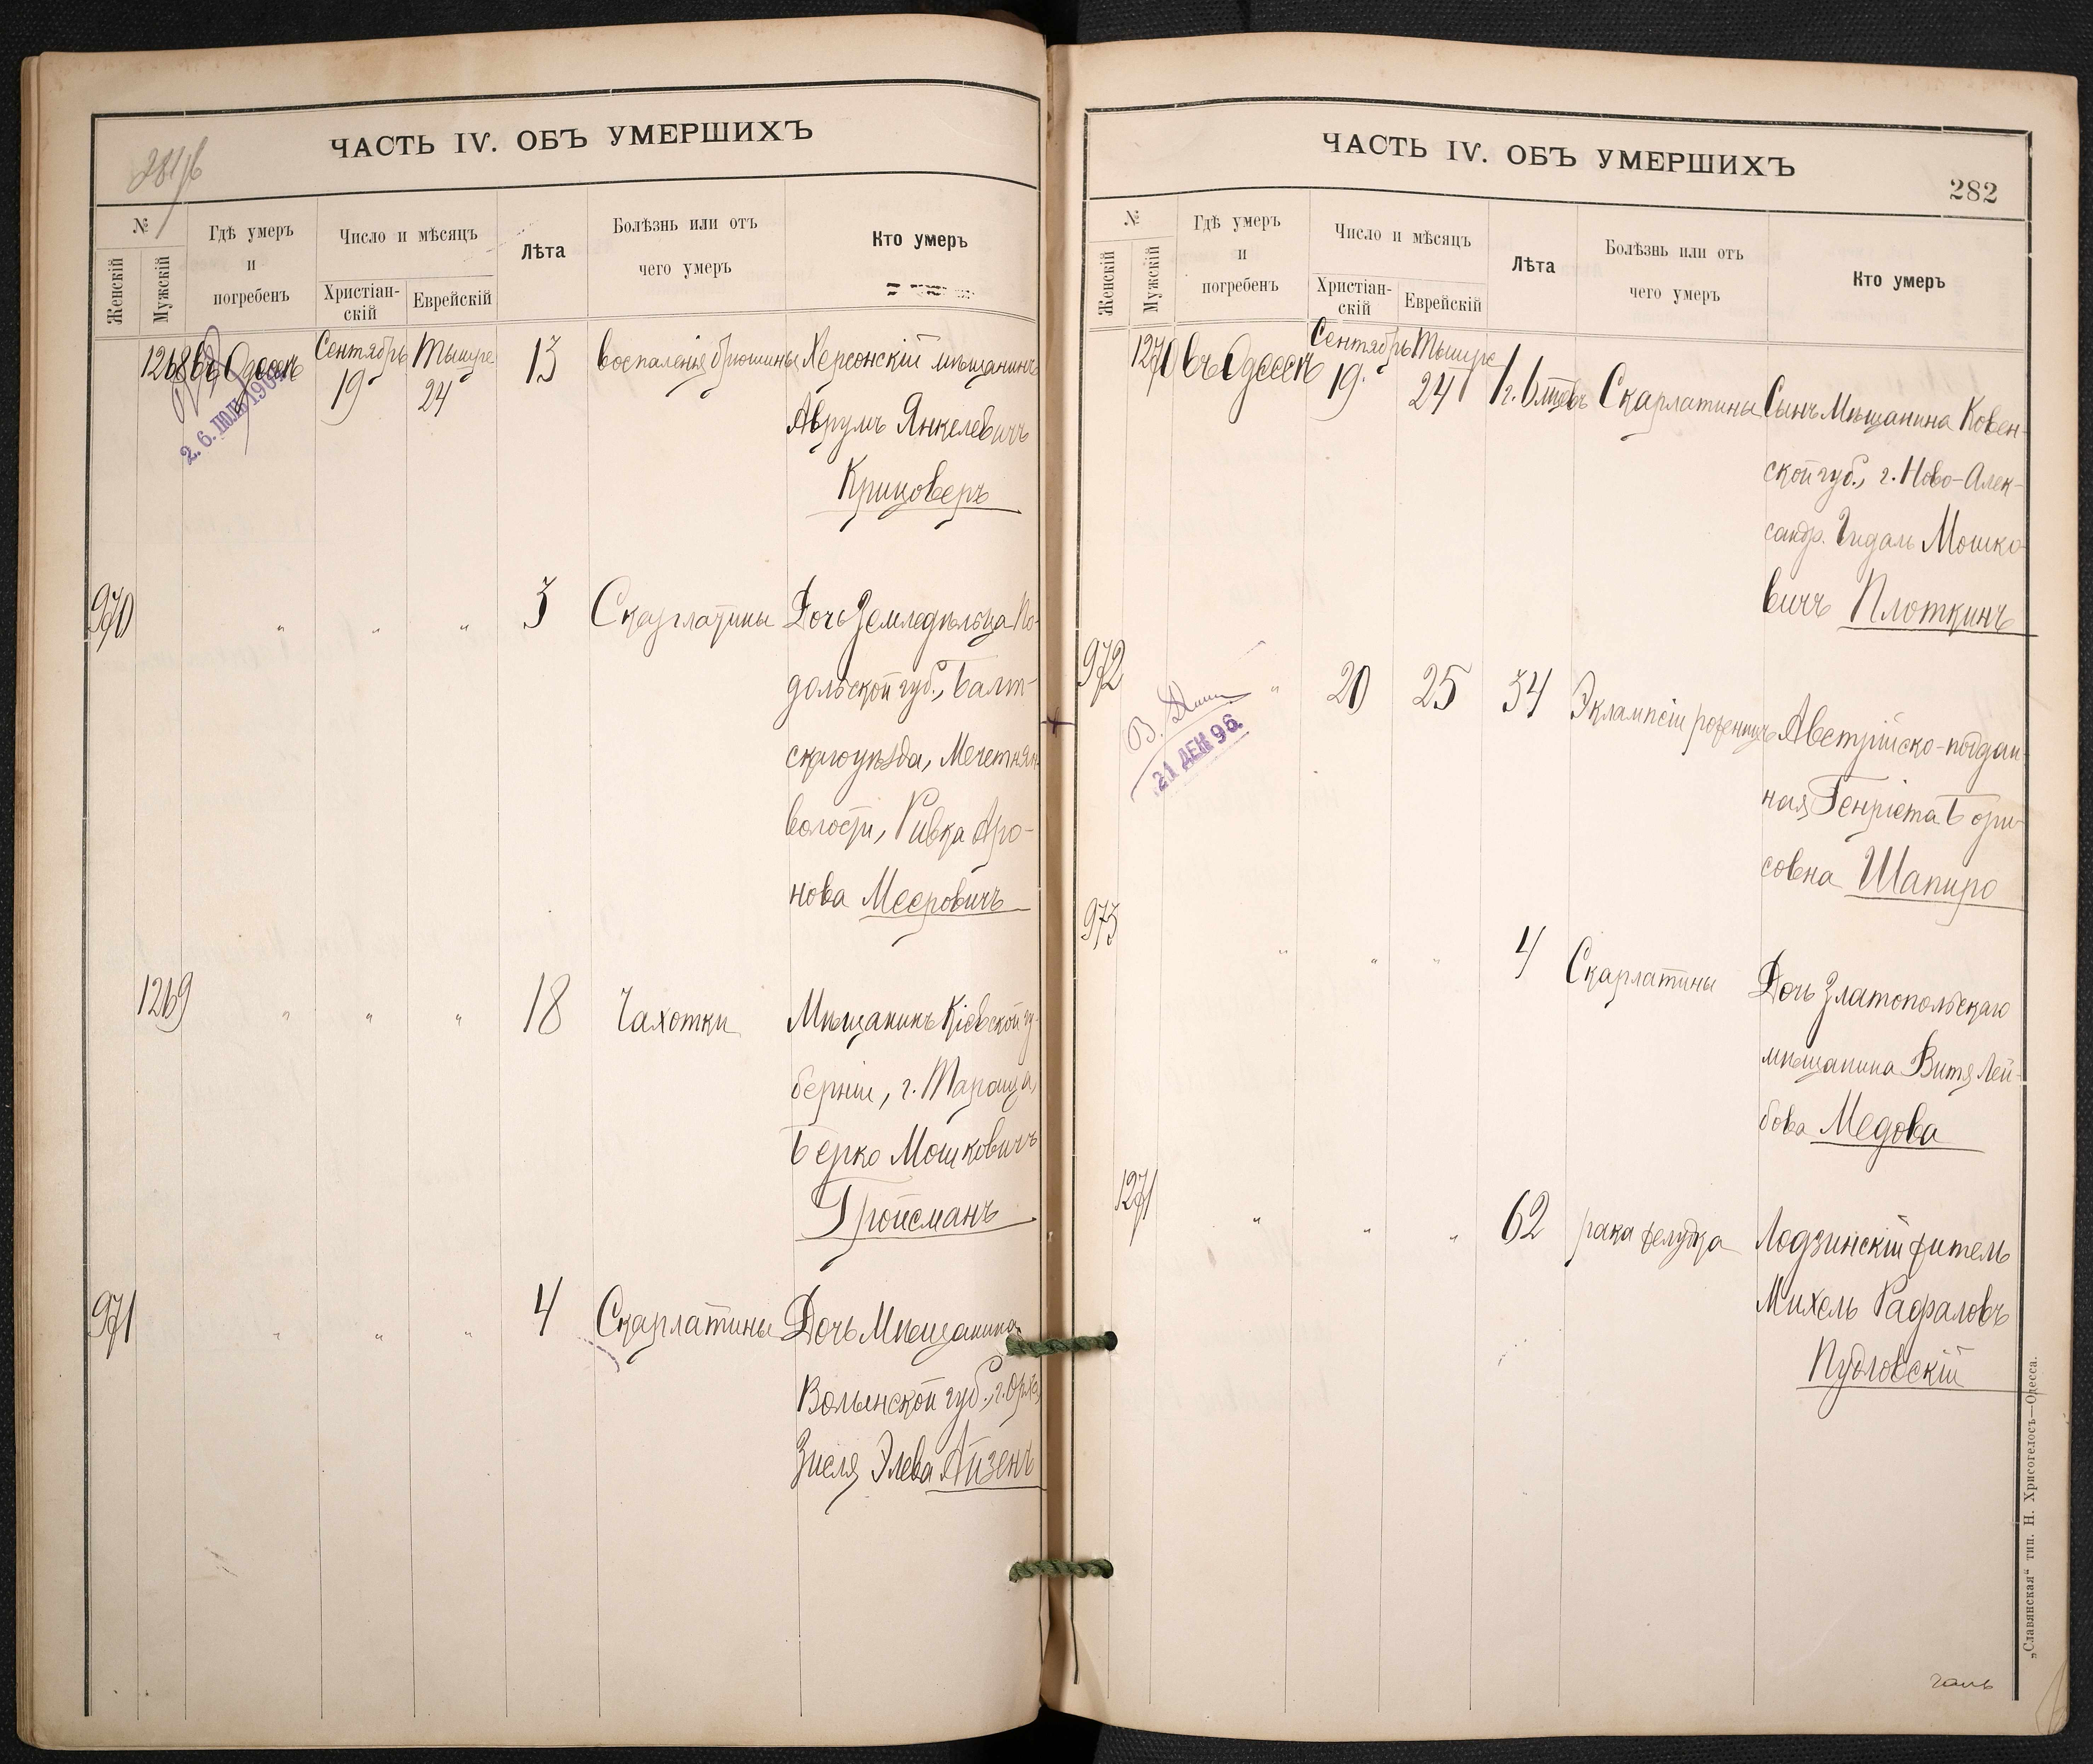 281/б
ЧАСТЬ IV. ОБЪ УМЕРШИХЪ
№
Женскій
Мужскій
Гдѣ умеръ
и
погребенъ
Число и мѣсяцъ
Христіан-
скій
Еврейскій
Лѣта
Болѣзнь или отъ
чего умеръ
Кто умеръ
1268 въ Одессѣ Сентябрь Тышре 13 воспаленія брюшины Херсонскій мѣщанинъ
19 24
Аврумъ Янкелевичъ
Криповеръ
970 " " " 3 Скарлатины Дочь Земледѣльца По-
дольской губ., Балт-
скаго уѣзда, Мечетнян.
волости, Ривка Аро-
нова Мееровичъ
1269 " " " 18 Чахотки Мѣщанинъ Кіевской гу-
берніи, г. Тараща,
Берко Мошковичъ
Гройсманъ
971 " " " 4 Скарлатины Дочь Мѣщанина
Волынской губ.,
Зисля Элева Айзенъ
ЧАСТЬ IV. ОБЪ УМЕРШИХЪ
282
№
Женскій
Мужскій
Гдѣ умеръ
и
погребенъ
Число и мѣсяцъ
Христіан-
скій
Еврейскій
Лѣта
Болѣзнь или отъ
чего умеръ
Кто умеръ
1270 въ Одессѣ Сентябрь Тышре
19. 24 1 г. 6 мцевъ Скарлатины Сынъ Мѣщанина Ковен-
ской губ., г. Ново-Алек-
сандр. Гидаль Мошко-
вичъ Плоткинъ
972 " 20 25 34 Эклампсіи роженицъ Австрійско-поддан-
ная Генріета Бори-
совна Шапиро
21 ДЕК 96
973 " " " 4 Скарлатины Дочь Златопольскаго
мѣщанина Витя Лей-
бова Медова
1271 " " " 62 рака желудка Лодзинскій житель
Михель Рафаловъ
Пудловскій
„Славянская“ тип. Н. Хрисогелосъ—Одесса.